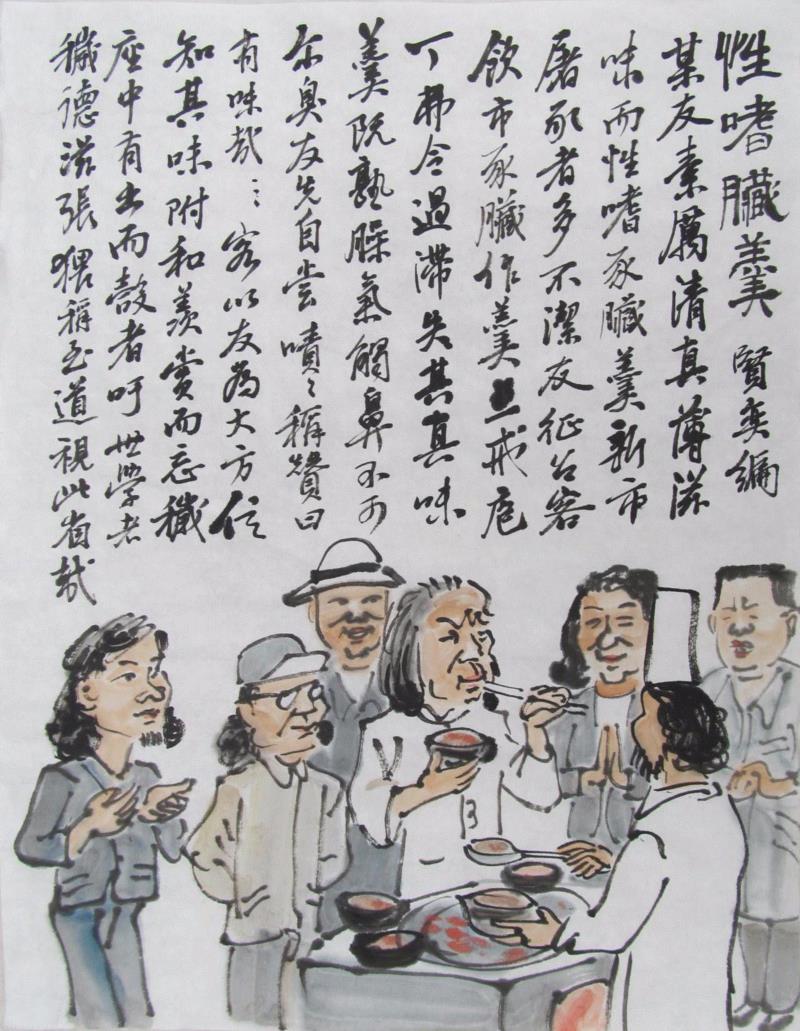 性嗜臟羹 賢奕編
某友素厲清真薄滋
味而性嗜豕臟羹新市
屠豕者多不潔友征客
飲市豕臟作羹戒庖
丁弗令過滞失其真味
羹既熟臊氣觸鼻不可
臭友先自尝嘖〻稱贊曰
有味哉〻〻客以友為大方信
知其味附和羨賞而忘穢
座中有出而殼者吁世學者
穢德滋張猥稱至道視此省哉